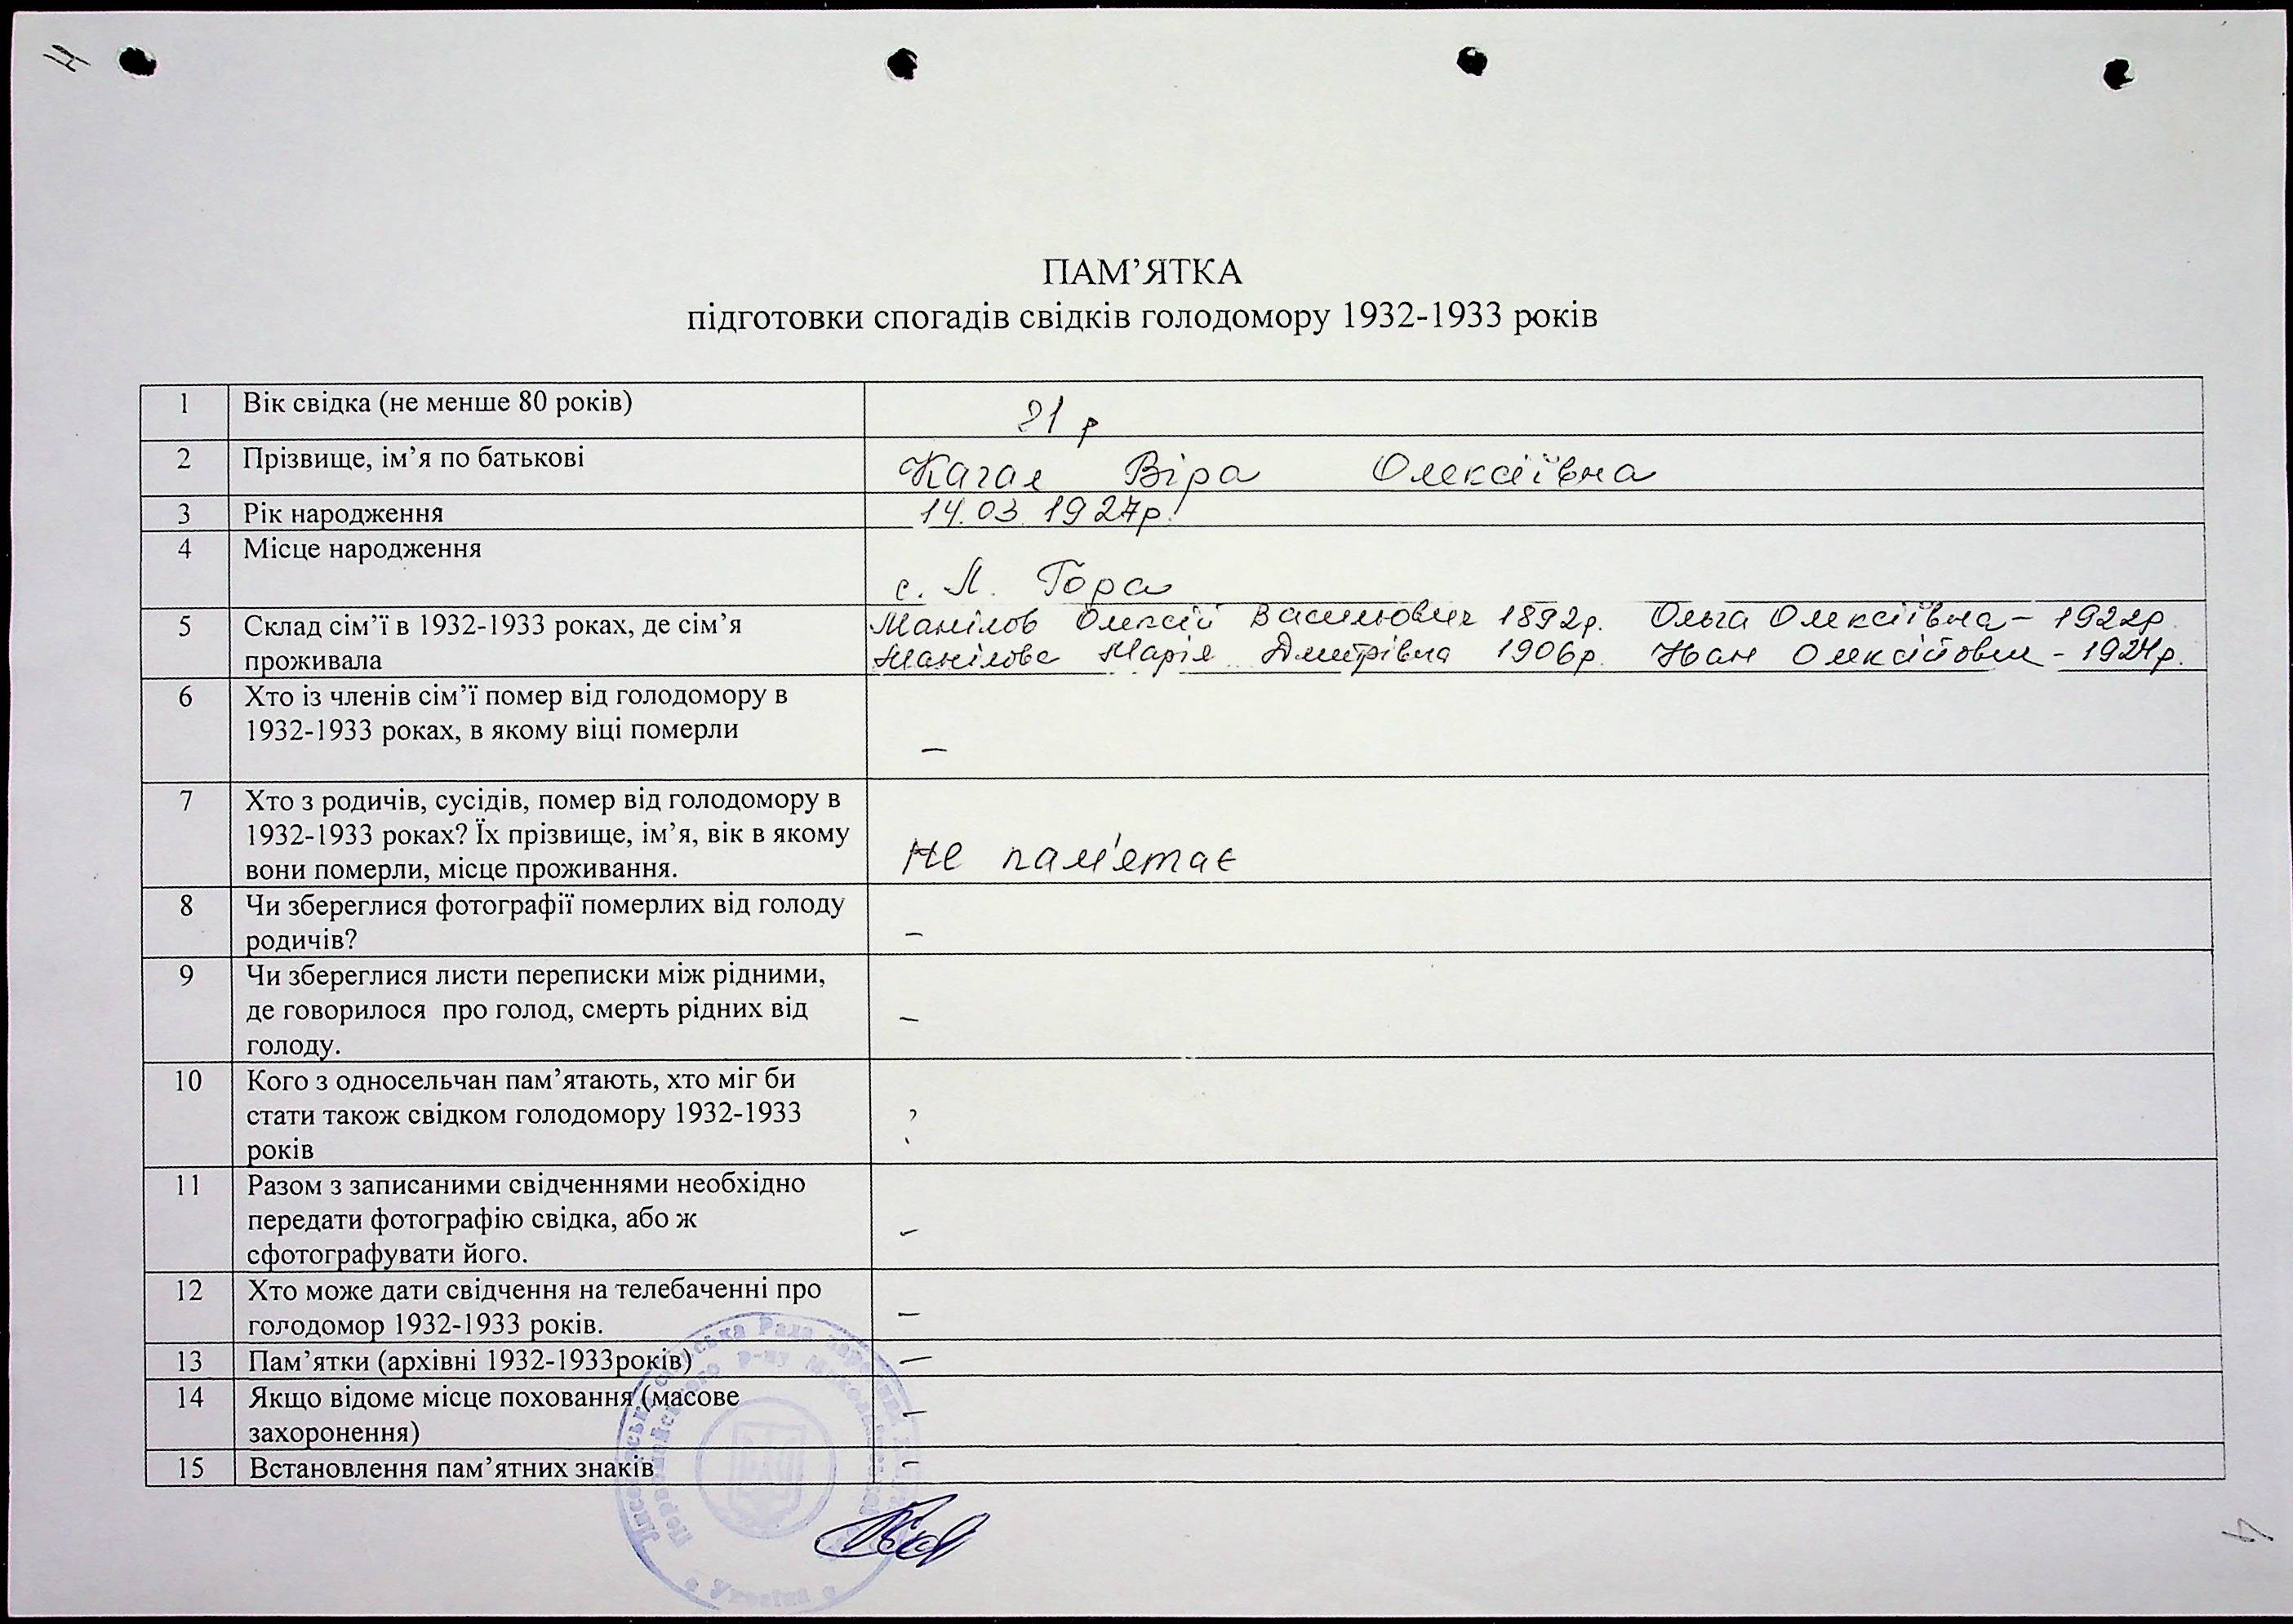 ПАМ’ЯТКА
підготовки спогадів свідків голодомору 1932-1933 років
1 Вік свідка (не менше 80 років) 81 р
2 Прізвище, ім’я по батькові Віра Олексіївна
3 Рік народження 14.03.1927р.
4 Місце народження с. Л. Гора
5 Склад сім’ї в 1932-1933 роках, де сім’я Манілов Олексій Васильович 1892р. Ольга Олексіївна – 1922р.
проживала Манілова Марія Дмитрівна 1906р. Іван Олексійович –
6 Хто із членів сім’ї помер від голодомору в
1932-1933 роках, в якому віці померли –
7 Хто з родичів, сусідів, помер від голодомору в
1932-1933 роках? Їх прізвище, ім’я, вік в якому
вони померли, місце проживання. Не пам'ятає
8 Чи збереглися фотографії померлих від голоду
родичів? –
9 Чи збереглися листи переписки між рідними,
де говорилося про голод, смерть рідних від –
голоду.
10 Кого з односельчан пам’ятають, хто міг би
стати також свідком голодомору 1932-1933 ?
років
11 Разом з записаними свідченнями необхідно
передати фотографію свідка, або ж –
сфотографувати його.
12 Хто може дати свідчення на телебаченні про
голодомор 1932-1933 років. –
13 Пам’ятки (архівні 1932-1933років) –
14 Якщо відоме місце поховання (масове –
захоронення)
15 Встановлення пам’ятних знаків –
Україна
4